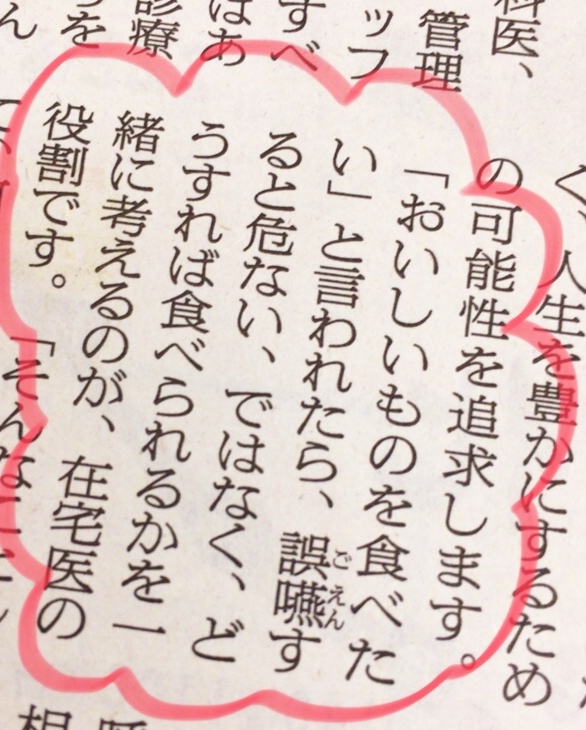 科医、
管理
ッフ
すべ
はあ
診療
を
ん
く、人生を豊かにするため
の可能性を追求します。
「おいしいものを食べた
い」と言われたら、誤嚥す
ごえん
ると危ない、ではなく、ど
うすれば食べられるかを一
緒に考えるのが、在宅医の
役割です。「そんな